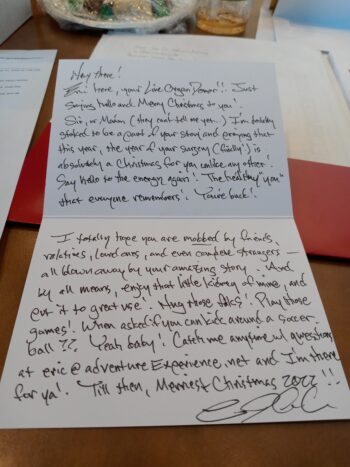 Hey there!
Eric here, your Live Organ Donor!! Just
saying hello and Merry Christmas to you!
Sir, or Madam (they can't tell me yet..) I'm totally
stoked to be a part of your story and praying that
this year, the year of your surgery (finally!) is
absolutely a Christmas for you unlike any other!
Say hello to the energy again! The healthy "you"
that everyone remembers! You're back!
I totally hope you are mobbed by friends,
relatives, loved ones, and even complete strangers —
all blown away by your amazing story. And
by all means, enjoy that little kidney of mine, and
put it to great use! Hug those folks! Play those
games! When asked if you can kick around a soccer
ball?? Yeah baby! Catch me anytime w/ questions
at eric@adventureExperience.net and I'm there
for ya! Till then, Merriest Christmas 2022!!